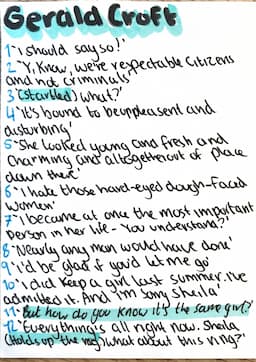 Gerald Croft
1 'I should say so!'
2 'Y'know, we're respectable citizens
and not criminals'
3 '(startled) what?'
4 'it's bound to be unpleasant and
disturbing'
5 'She looked young and fresh and
charming and altogether out of place
down there'
6 'I hate those hard-eyed dough-faced
women'
7 'I became at once the most important
person in her life - you understand?'
8 'Nearly any man would have done'
9 'i'd be glad if you'd let me go'
10 'I did keep a girl last summer. i've
admitted it. And i'm sorry sheila'
11 'But how do you know it's the same girl?'
12 'Everything's all right now. Sheila
(Holds up the ring) what about this ring?'